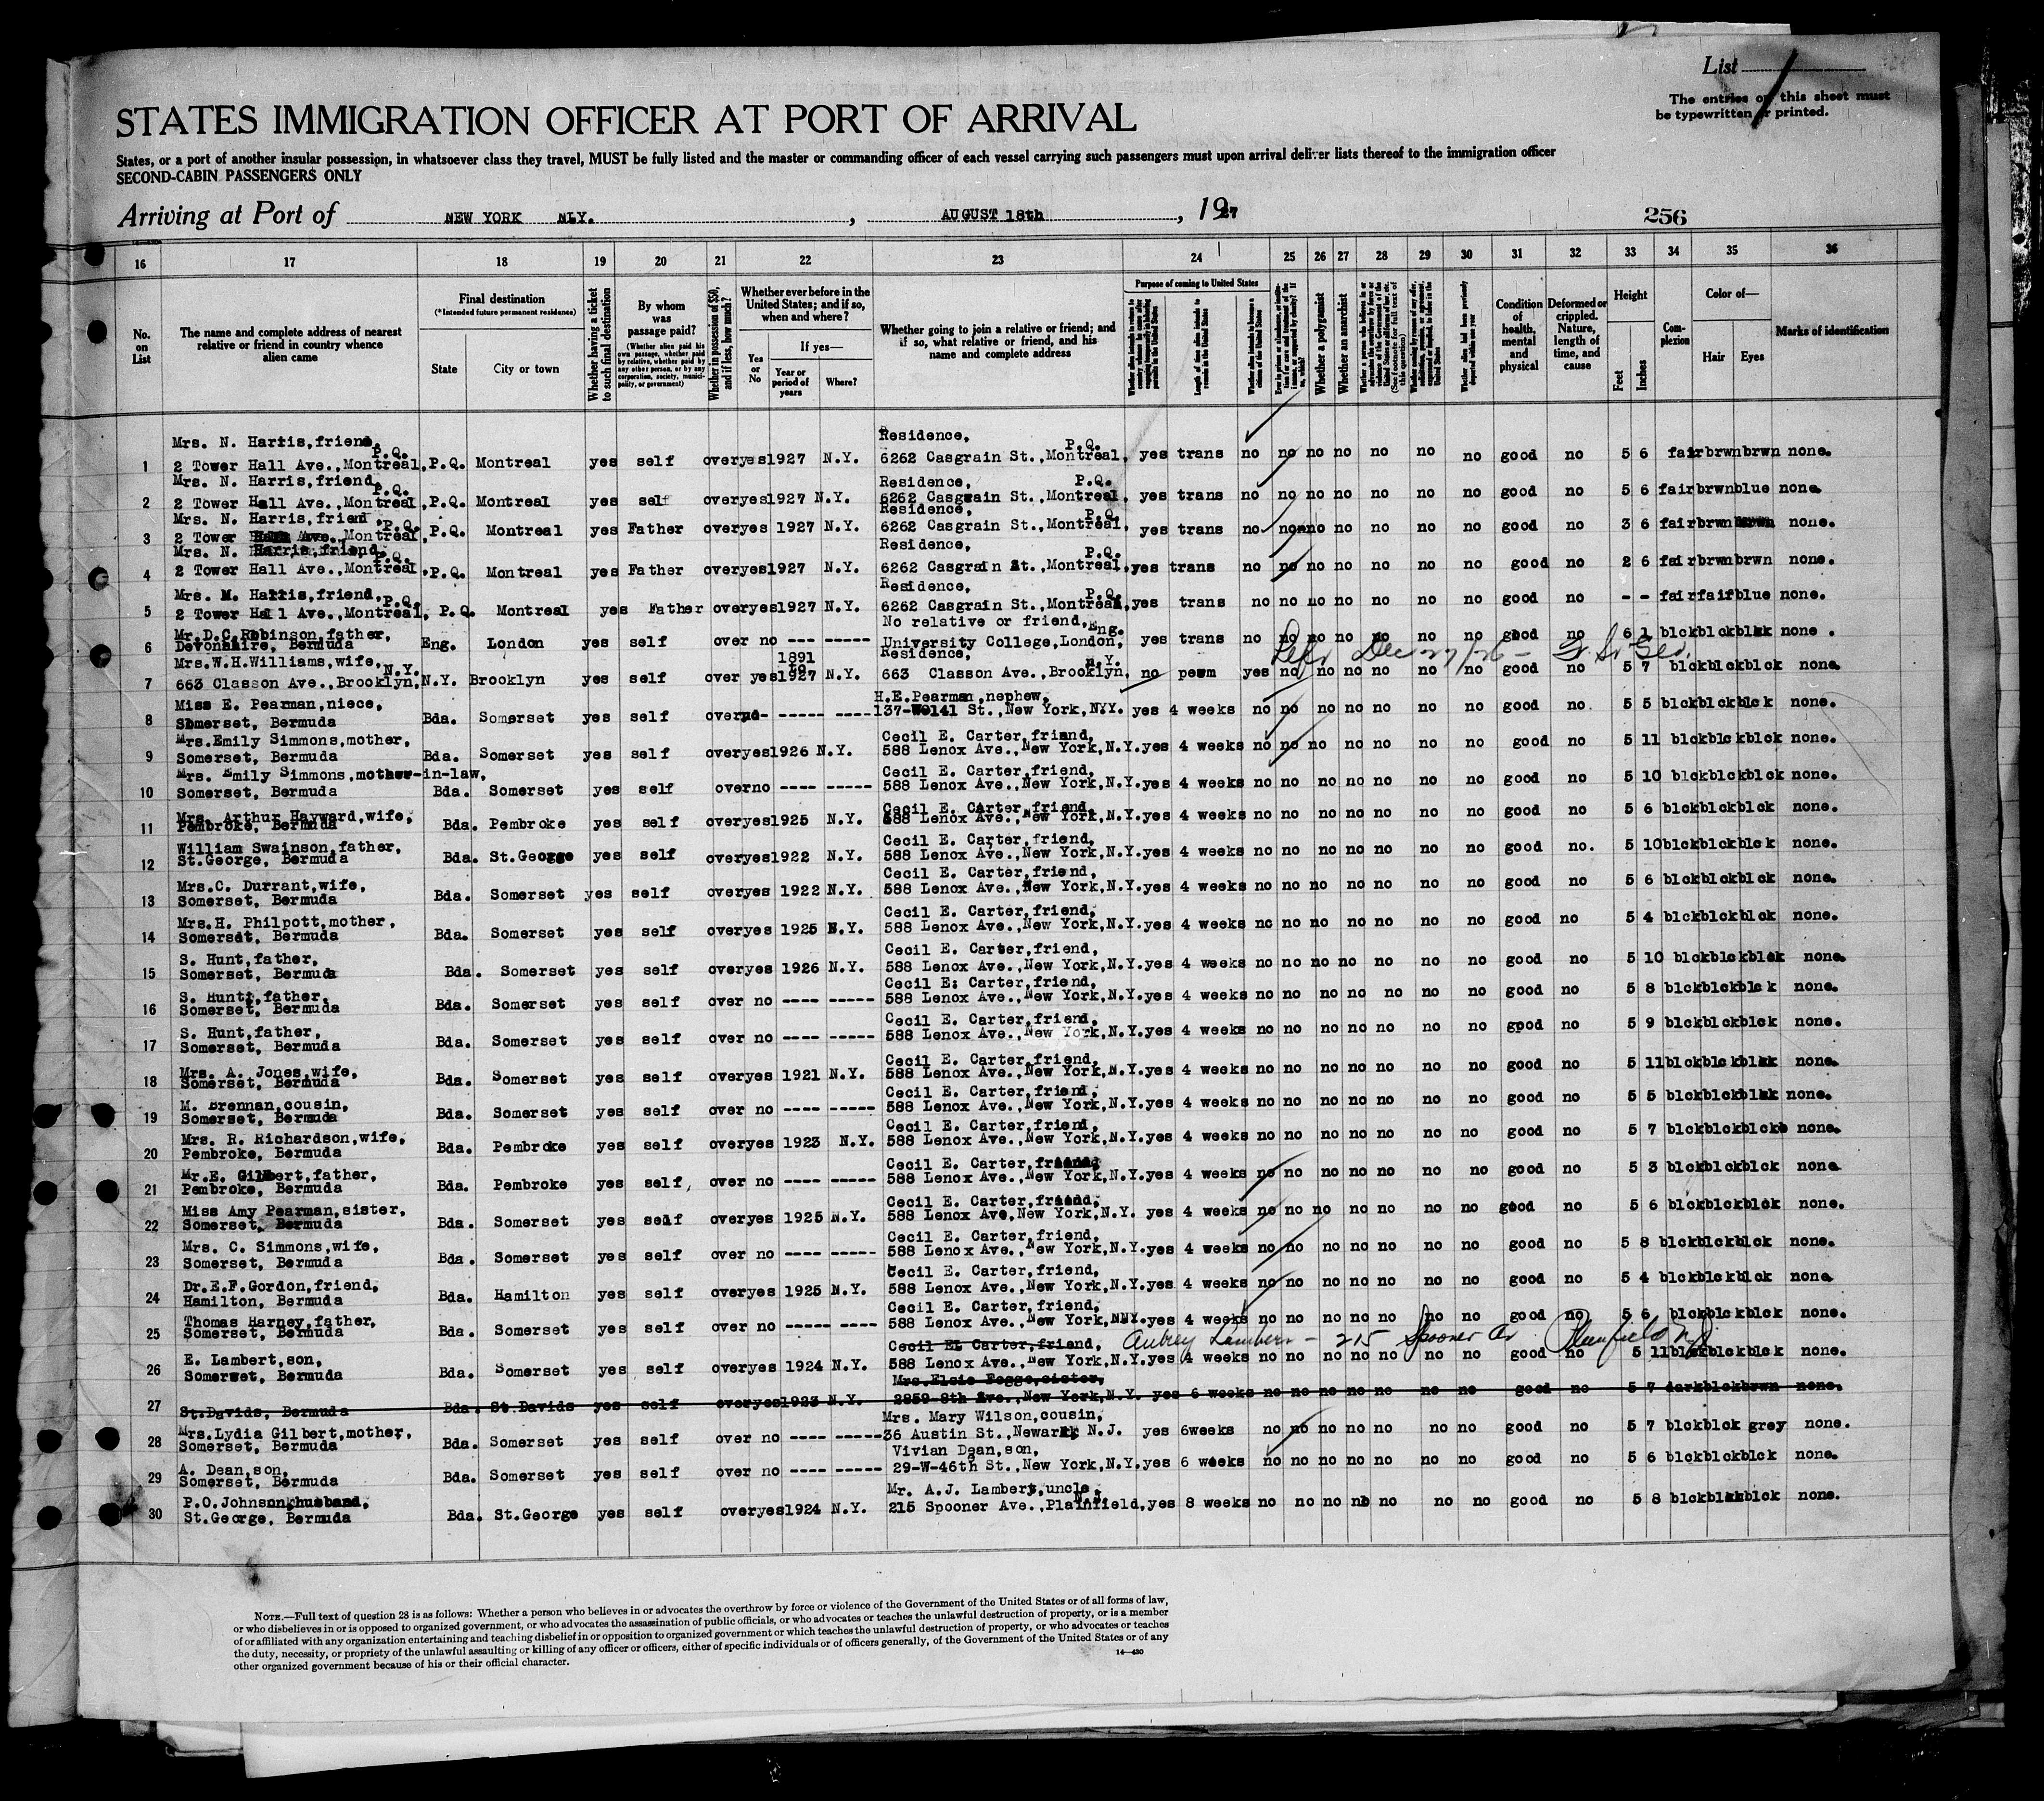 List
The entries on this sheet must
be typewritten or printed.
STATES IMMIGRATION OFFICER AT PORT OF ARRIVAL
States, or a port of another insular possession, in whatsoever class they travel, MUST be fully listed and the master or commanding officer of each vessel carrying such passengers must upon arrival deliver lists thereof to the immigration officer
SECOND-CABIN PASSENGERS ONLY
Arriving at Port of NEW YORK NLY. , AUGUST 18th , 1927
256
16 17 18 19 20 21 22 23 24 25 26 27 28 29 30 31 32 33 34 35 36
No. on List
The name and complete address of nearest relative or friend in country whence alien came
Final destination
(*Intended future permanent residence)
State
City or town
Whether having a ticket to such final destination
By whom was passage paid?
(Whether alien paid his own passage, whether paid by relative, whether paid by any other person, or by any corporation, society, municipality, or government)
Whether in possession of $50, and if less, how much?
Whether ever before in the United States; and if so, when and where?
Yes or No
If yes—
Year or period of years
Where?
Whether going to join a relative or friend; and if so, what relative or friend, and his name and complete address
Purpose of coming to United States
Length of time alien intends to remain in the United States
Whether a polygamist
Whether an anarchist
(See footnote for full text of this question)
Condition of health, mental and physical
Deformed or crippled. Nature, length of time, and cause
Height
Feet
Inches
Complexion
Color of—
Hair
Eyes
Marks of identification
Mrs. N. Harris,friend, P.Q. Residence, P.Q.
1 2 Tower Hall Ave.,Montreal, P.Q. Montreal yes self over yes 1927 N.Y. 6262 Casgrain St.,Montreal, yes trans no no no no no no no good no 5 6 fair brwn brwn none.
Mrs. N. Harris,friend, P.Q. Residence, P.Q.
2 2 Tower Hall Ave.,Montreal, P.Q. Montreal yes self over yes 1927 N.Y. 6262 Casgrain St.,Montreal, yes trans no no no no no no no good no 5 6 fair brwn blue none.
Mrs. N. Harris,friend, P.Q. Residence, P.Q.
3 2 Tower Ave.,Montreal, P.Q. Montreal yes Father over yes 1927 N.Y. 6262 Casgrain St.,Montreal, yes trans no no no no no no no good no 3 6 fair brwn none.
Mrs. N. Harris,friend, P.Q. Residence, P.Q.
4 2 Tower Hall Ave.,Montreal, P.Q. Montreal yes Father over yes 1927 N.Y. 6262 Casgrain St.,Montreal, yes trans no no no no no no no good no 2 6 fair brwn brwn none.
Mrs. N. Harris,friend, P.Q. Residence, P.Q.
5 2 Tower Hall Ave.,Montreal, P.Q. Montreal yes Father over yes 1927 N.Y. 6262 Casgrain St.,Montreal, yes trans no no no no no no no good no - - fair fair blue none.
Mr.D.C.Robinson,father, No relative or friend, Eng.
6 Devonshire, Bermuda Eng. London yes self over no --- ----- University College,London, yes trans no no no no no no no good no 6 1 blck blck blck none .
Left Dec 27/26 - Ft St Geo.
Mrs.W.H.Williams,wife, N.Y. 1891 to Residence, N.Y.
7 663 Classon Ave.,Brooklyn, N.Y. Brooklyn yes self over yes 1927 N.Y. 663 Classon Ave.,Brooklyn, no perm yes no no no no no no good no 5 7 blck blck blck none.
Miss E. Pearman,niece, H.E.Pearman,nephew,
8 Somerset, Bermuda Bda. Somerset yes self over no- ----- ---- 137-W-141 St.,New York,N.Y. yes 4 weeks no no no no no no no good no. 5 5 blck blck blck none.
Mrs.Emily Simmons,mother, Cecil E. Carter,friend,
9 Somerset, Bermuda Bda. Somerset yes self over yes 1926 N.Y. 588 Lenox Ave.,New York,N.Y. yes 4 weeks no no no no no no no good no 5 11 blck blck blck none.
Mrs. Emily Simmons,mother-in-law, Cecil E. Carter,friend,
10 Somerset, Bermuda Bda. Somerset yes self over no ---- ----- 588 Lenox Ave.,New York,N.Y. yes 4 weeks no no no no no no no good no 5 10 blck blck blck none.
Mrs. Arthur Hayward,wife, Cecil E. Carter,friend,
11 Pembroke, Bermuda Bda. Pembroke yes self over yes 1925 N.Y. 588 Lenox Ave.,New York,N.Y. yes 4 weeks no no no no no no no good no 5 6 blck blck blck none.
William Swainson,father, Cecil E. Carter,friend,
12 St.George, Bermuda Bda. St.George yes self over yes 1922 N.Y. 588 Lenox Ave.,New York,N.Y. yes 4 weeks no no no no no no no good no. 5 10 blck blck blck none.
Mrs.C. Durrant,wife, Cecil E. Carter,friend,
13 Somerset, Bermuda Bda. Somerset yes self over yes 1922 N.Y. 588 Lenox Ave.,New York,N.Y. yes 4 weeks no no no no no no no good no 5 6 blck blck blck none.
Mrs.H. Philpott,mother, Cecil E. Carter,friend,
14 Somerset, Bermuda Bda. Somerset yes self over yes 1925 N.Y. 588 Lenox Ave.,New York,N.Y. yes 4 weeks no no no no no no no good no 5 4 blck blck blck none.
S. Hunt,father, Cecil E. Carter,friend,
15 Somerset, Bermuda Bda. Somerset yes self over yes 1926 N.Y. 588 Lenox Ave.,New York,N.Y. yes 4 weeks no no no no no no no good no 5 10 blck blck blck none.
S. Huntt,father, Cecil E: Carter,friend,
16 Somerset, Bermuda Bda. Somerset yes self over no ---- ----- 588 Lenox Ave.,New York,N.Y. yes 4 weeks no no no no no no no good no 5 8 blck blck blck none.
S. Hunt,father, Cecil E. Carter,friend,
17 Somerset, Bermuda Bda. Somerset yes self over no ---- ----- 588 Lenox Ave.,New York,N.Y. yes 4 weeks no no no no no no no good no 5 9 blck blck blck none.
Mrs. A. Jones,wife, Cecil E. Carter,friend,
18 Somerset, Bermuda Bda. Somerset yes self over yes 1921 N.Y. 588 Lenox Ave.,New York,N.Y. yes 4 weeks no no no no no no no good no 5 11 blck blck blck none.
M. Brennan,cousin, Cecil E. Carter,friend,
19 Somerset, Bermuda Bda. Somerset yes self over no ---- ----- 588 Lenox Ave.,New York,N.Y. yes 4 weeks no no no no no no no good no 5 5 blck blck blck none.
Mrs. R. Richardson,wife, Cecil E. Carter,friend,
20 Pembroke, Bermuda Bda. Pembroke yes self over yes 1923 N.Y. 588 Lenox Ave.,New York,N.Y. yes 4 weeks no no no no no no no good no 5 7 blck blck blck none.
Mr.E. Gilbert,father, Cecil E. Carter,friend,
21 Pembroke, Bermuda Bda. Pembroke yes self, over no ---- ----- 588 Lenox Ave.,New York,N.Y. yes 4 weeks no no no no no no no good no 5 3 blck blck blck none.
Miss Amy Pearman,sister, Cecil E. Carter,friend,
22 Somerset, Bermuda Bda. Somerset yes self over yes 1925 N.Y. 588 Lenox Ave,New York,N.Y. yes 4 weeks no no no no no no no good no 5 6 blck blck blck none.
Mrs. C. Simmons,wife, Cecil E. Carter,friend,
23 Somerset, Bermuda Bda. Somerset yes self over no ---- ----- 588 Lenox Ave.,New York,N.Y. yes 4 weeks no no no no no no no good no 5 8 blck blck blck none.
Dr.E.F.Gordon,friend, Cecil E. Carter,friend,
24 Hamilton, Bermuda Bda. Hamilton yes self over yes 1925 N.Y. 588 Lenox Ave.,New York,N.Y. yes 4 weeks no no no no no no no good no 5 4 blck blck blck none
Thomas Harney,father, Cecil E. Carter,friend,
25 Somerset, Bermuda Bda. Somerset yes self over no ---- ---- 588 Lenox Ave.,New York,N.Y. yes 4 weeks no no no no no no no good no 5 6 blck blck blck none.
E. Lambert,son, Cecil E. Carter,friend, Aubrey Lambert - 215 Spooner Av Plainfield NJ
26 Somerwet, Bermuda Bda. Somerset yes self over yes 1924 N.Y. 588 Lenox Ave.,New York,N.Y. yes 4 weeks no no no no no no no good no 5 11 blck blck blck none.
Mrs.Elsie Foggo,sister,
27 St.Davids, Bermuda Bda. St.Davids yes self over yes 1923 N.Y. 2859 8th Ave.,New York,N.Y. yes 6 weeks no no no no no no no good no 5 7 dark blck brwn none.
Mrs.Lydia Gilbert,mother, Mrs. Mary Wilson,cousin,
28 Somerset, Bermuda Bda. Somerset yes self over no ---- ----- 36 Austin St.,Newark, N.J. yes 6weeks no no no no no no no good no 5 7 blck blck grey none.
A. Dean,son, Vivian Dean,son,
29 Somerset, Bermuda Bda. Somerset yes self over no ---- ----- 29-W-46th St.,New York,N.Y. yes 6 weeks no no no no no no no good no 5 6 blck blck blck none.
P.O.Johnson,husband, Mr. A.J. Lambert,uncle, N.J.
30 St.George, Bermuda Bda. St.George yes self over yes 1924 N.Y. 215 Spooner Ave.,Plainfield, yes 8 weeks no no no no no no no good no 5 8 blck blck blck none.
NOTE.—Full text of question 28 is as follows: Whether a person who believes in or advocates the overthrow by force or violence of the Government of the United States or of all forms of law,
or who disbelieves in or is opposed to organized government, or who advocates the assassination of public officials, or who advocates or teaches the unlawful destruction of property, or is a member
of or affiliated with any organization entertaining and teaching disbelief in or opposition to organized government or which teaches the unlawful destruction of property, or who advocates or teaches
the duty, necessity, or propriety of the unlawful assaulting or killing of any officer or officers, either of specific individuals or of officers generally, of the Government of the United States or of any
other organized government because of his or their official character.
14—430